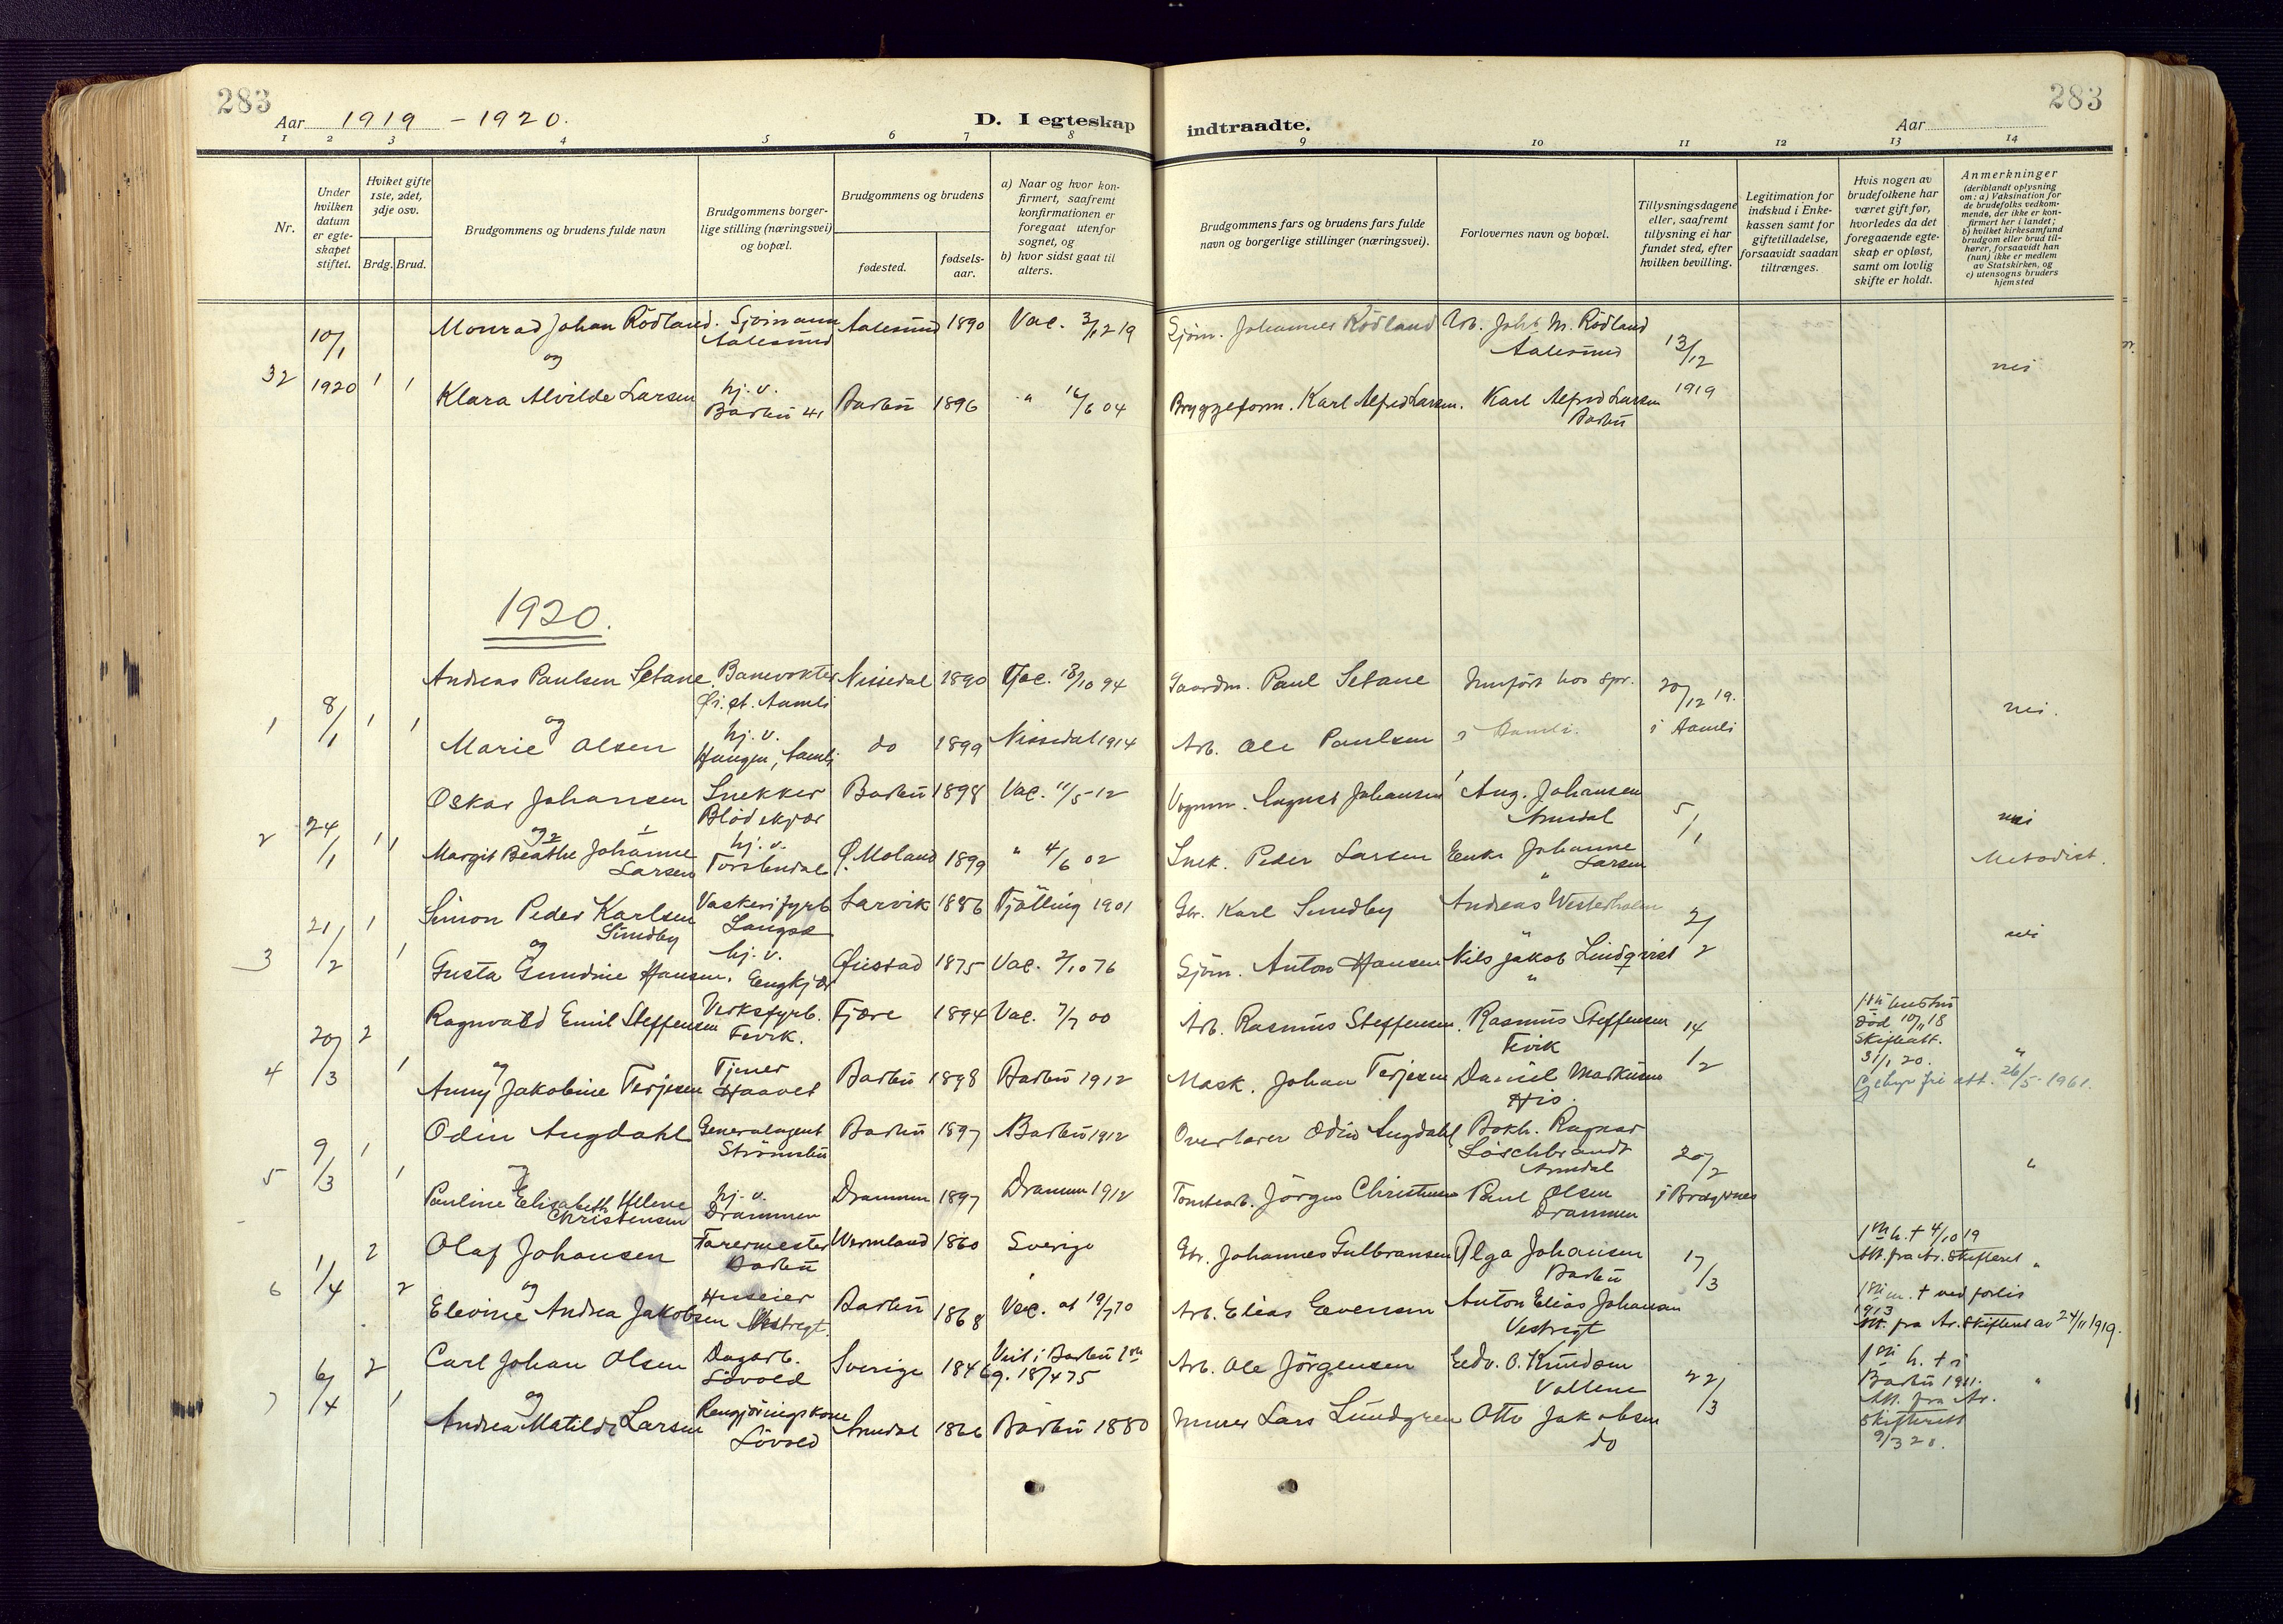 283
283
Aar 1919 - 1920.
D. I egteskap
indtraadte.
Aar
1 2 3 4 5 6 7 8
9 10 11 12 13 14
Nr.
Under hvilken datum er egteskapet stiftet.
Hviket gifte 1ste, 2det, 3dje osv.
Brdg. Brud.
Brudgommens og brudens fulde navn
Brudgommens borgerlige stilling (næringsvei) og bopæl.
Brudgommens og brudens
fødested.
fødselsaar.
a) Naar og hvor konfirmert, saafremt konfirmationen er foregaat utenfor sognet, og
b) hvor sidst gaat til alters.
Brudgommens fars og brudens fars fulde navn og borgerlige stillinger (næringsvei).
Forlovernes navn og bopæl.
Tillysningsdagene eller, saafremt tillysning ei har fundet sted, efter hvilken bevilling.
Legitimation for indskud i Enkekassen samt for giftetilladelse, forsaavidt saadan tiltrænges.
Hvis nogen av brudefolkene har været gift før, hvorledes da det foregaaende egteskap er opløst, samt om lovlig skifte er holdt.
Anmerkninger
(deriblandt oplysning om: a) Vaksination for de brudefolks vedkommende, der ikke er konfirmert her i landet; b) hvilket kirkesamfund brudgom eller brud tilhører, forsaavidt han (hun) ikke er medlem av Statskirken, og c) utensogns bruders hjemsted
32 10/1 1920 1 1
Monrad Johan Rödland. Sjömann Aalesund Aalesund 1890 Vac. 3/12 19 Sjöm. Johannes Rödland Arb. Johs M. Rödland Aalesund 13/12 1919
og
Klara Alvilde Larsen hj. v. Barbu 41 Barbu 1896 " 16/6 04 Bryggeform. Karl Alfred Larsen. Karl Alfred Larsen Barbu nei
1920.
1 8/1 1 1
Andreas Paulsen Setane Banevokter Nissedal 1890 Vac. 13/10 94 Gaardm. Paul Setane Innfört hos spr. 20/12 19.
og
Marie Olsen hj. v. Haugen, Aamli do 1899 Nissedal 1914 Arb. Ole Paulsen i Aamli. i Aamli nei.
2 24/1 1 1
Oskar Johansen Snekker Blödekjær Barbu 1898 Vac. 11/5 12 Vognm. August Johansen Aug. Johansen Arendal 5/1 nei
og
Margit Beathe Johanne Larsen hj. v. Torsbudal Ø. Moland 1899 " 4/6 02 Snek. Peder Larsen Enke Johanne Larsen " Metodist.
3 21/2 1 1
Simon Peder Karlsen Sundby Vaskerifyrb. Langsæ Larvik 1886 Tjölling 1901 Gbr. Karl Sundby Andreas Westerholm " 2/2
og
Gusta Gundine Hansen. hj. v. Engkjær Øiestad 1875 Vac. 2/10 76 Sjöm. Anton Hansen Nils Jakob Lindqvist " nei
4 20/3 2 1
Ragnvald Emil Steffensen Verksfyrb. Fevik. Fjære 1894 Vac. 7/7 00 Arb. Rasmus Steffensen. Rasmus Steffensen Fevik 14/2 1ste hustru död 10/11 18 Skifteatt. 31/1 20. "
og
Anny Jakobine Terjesen Tjener Haavet Barbu 1898 Barbu 1912 Mask. Johan Terjesen Daniel Markussen His. Gebyr fri att. 26/5-1961.
5 9/3 1 1
Odin Augdahl Generalagent Strömsbu Barbu 1897 Barbu 1912 Overlærer Odin Augdahl Bokh. Ragnar Löschbrandt Arendal 20/2
og
Pauline Elisabeth Helene Christensen hj. v. Drammen Drammen 1897 Drammen 1912 Tomtearb. Jörgen Christensen Paul Olsen Drammen i Bragernes "
6 1/4 2 2
Olaf Johansen Farermester Barbu Wermland 1860 Sverige Gbr. Johannes Gulbransen Olga Johansen Barbu 17/3 1ste h. + 4/10 19 Att. fra Ar. Skifteret "
og
Elevine Andrea Jakobsen Huseier Vestregt. Barbu 1868 Vac. at 19/7 70 Arb. Elias Evensen Anton Elias Johansen Vestregt 1ste m. + ved forlis 1913 Att. fra Ar. Skifteret av 24/11 1919.
7 6/4 2 1
Carl Johan Olsen Dagarb. Lövold Sverige 1846 Viet i Barbu 1ste g. 18/4 75 Arb. Ole Jörgensen Edv. O. Knudsen Vollene 22/3 1ste h. + i Barbu 1911. Att. fra Ar. Skifterett 9/3 20. "
og
Andrea Matilde Larsen Rengjöringskone Lövold Arendal 1866 Barbu 1880 Murer Lars Lundgren Otto Jakobsen do